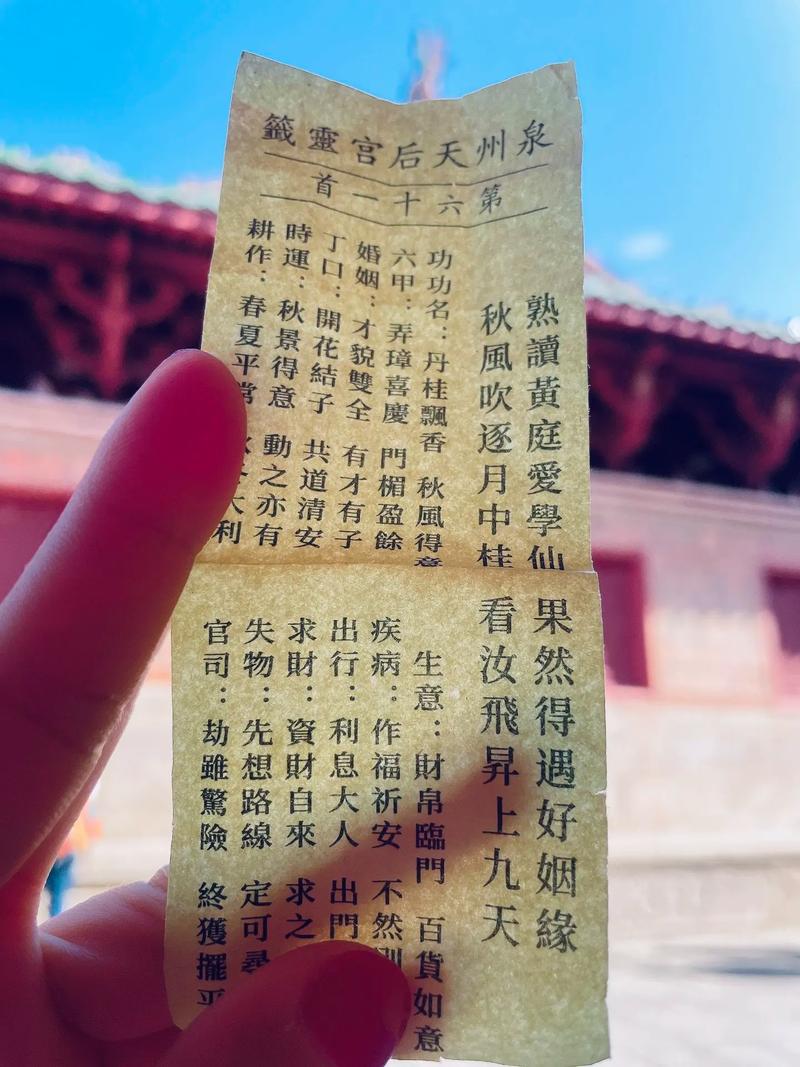 泉州天后宮靈籤
第六十一首
熟讀黃庭愛學仙 果然得遇好姻緣
秋風吹逐月中桂 看汝飛昇上九天
功功名：丹桂飄香 秋風得意
六甲：弄璋喜慶 門楣盈餘
婚姻：才貌雙全 有才有子
丁口：開花結子 共道清安
時運：秋景得意 動之亦有
耕作：春夏平常 大利
生意：財帛臨門 百貨如意
疾病：作福祈安 不然
出行：利息大人 出門
求財：資財自來 求之
失物：先想路線 定可尋
官司：劫雖驚險 終獲擺平